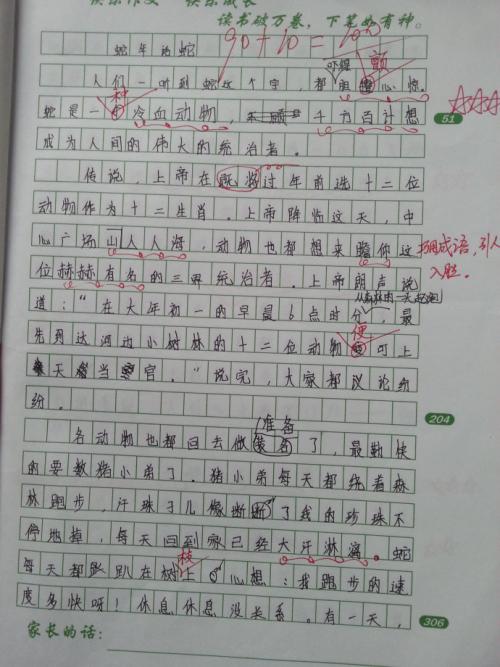 读书破万卷，下笔如有神。
90+10=100
蛇年的蛇
人们一听到蛇这个字，都吓得胆颤心惊。
蛇是一种冷血动物，千方百计想 51
成为人间的伟大的统治者。
传说，上帝在既将过年前选十二位
动物作为十二生肖。上帝降临这天，中
心广场山人人海，动物也都想来瞻仰这
用成语，引人入胜。
位赫赫有名的三界统治者。上帝朗声说
道：“在大年初一的早晨6点时分，最
先到达河边小树林的十二位动物便可上
天当官。”说完，大家都议论纷
纷。 204
准备
各动物也都回去做装备了，最勤快
的要数猪小弟了。猪小弟每天都绕着森
林跑步，汗珠子儿像断了线的珍珠不
停地掉，每天回到家已经大汗淋漓。蛇
每天都趴在树枝上心想：我跑步的速
度多快呀！休息休息没关系。有一天， 306
家长的话：